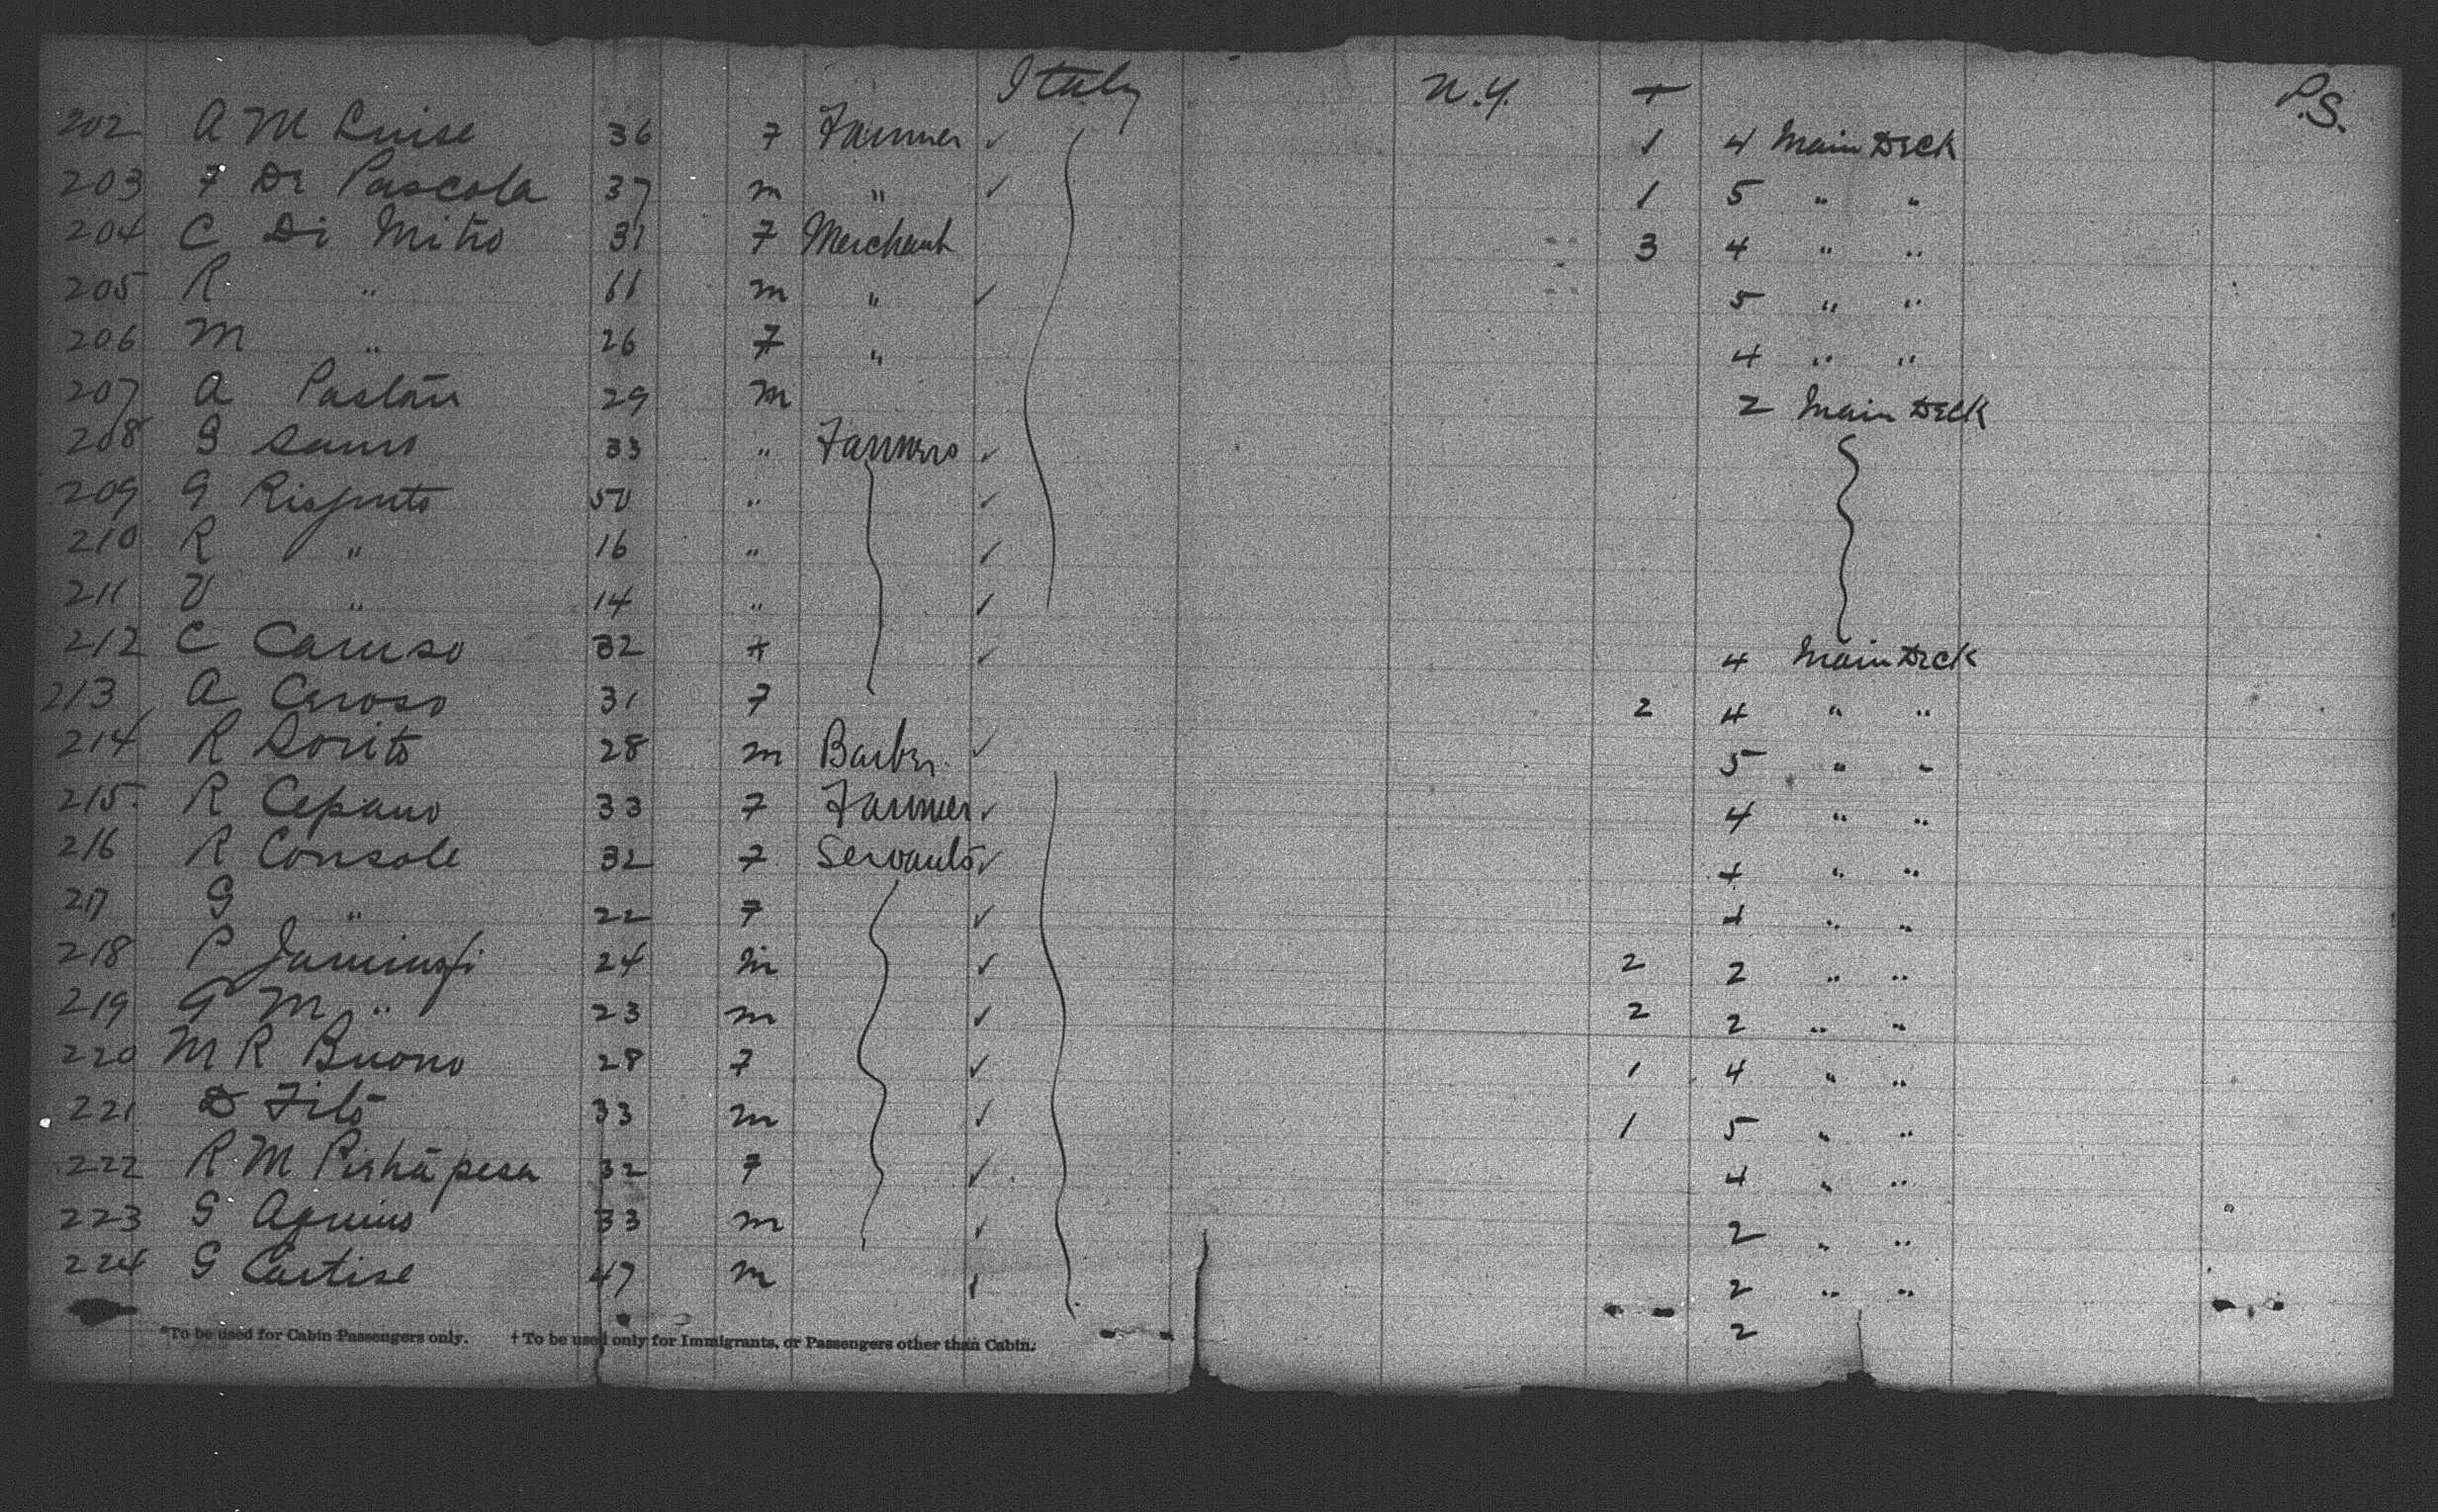 Italy N.Y. + P.S.
202 A M Luise 36 F Farmer ✓ 1 4 Main Deck
203 F De Pascola 37 m " ✓ 1 5 " "
204 C Di Mitro 31 F Merchant 3 4 " "
205 R " 61 m " ✓ 5 " "
206 M " 26 F " 4 " "
207 A 29 m 2 Main Deck
208 S 33 " Farmers ✓
209 G Risputo 50 " ✓
210 R " 16 " ✓
211 V " 14 " ✓
212 C Caruso 32 ✓ 4 Main Deck
213 A Caroso 31 F 2 4 " "
214 R Dorito 28 m Barber ✓ 5 " "
215 R Cepano 33 F Farmer ✓ 4 " "
216 R Console 32 F Servants ✓ 4 " "
217 G " 22 F ✓ 4 " "
218 P 24 m ✓ 2 2 " "
219 G M " 23 m ✓ 2 2 " "
220 M R Buono 28 F ✓ 1 4 " "
221 D Tito 33 m ✓ 1 5 " "
222 R M 32 F ✓ 4 " "
223 S Aquino 33 m ✓ 2 " "
224 G Cartise 47 m ✓ 2 " "
2
*To be used for Cabin Passengers only. † To be used only for Immigrants, or Passengers other than Cabin.